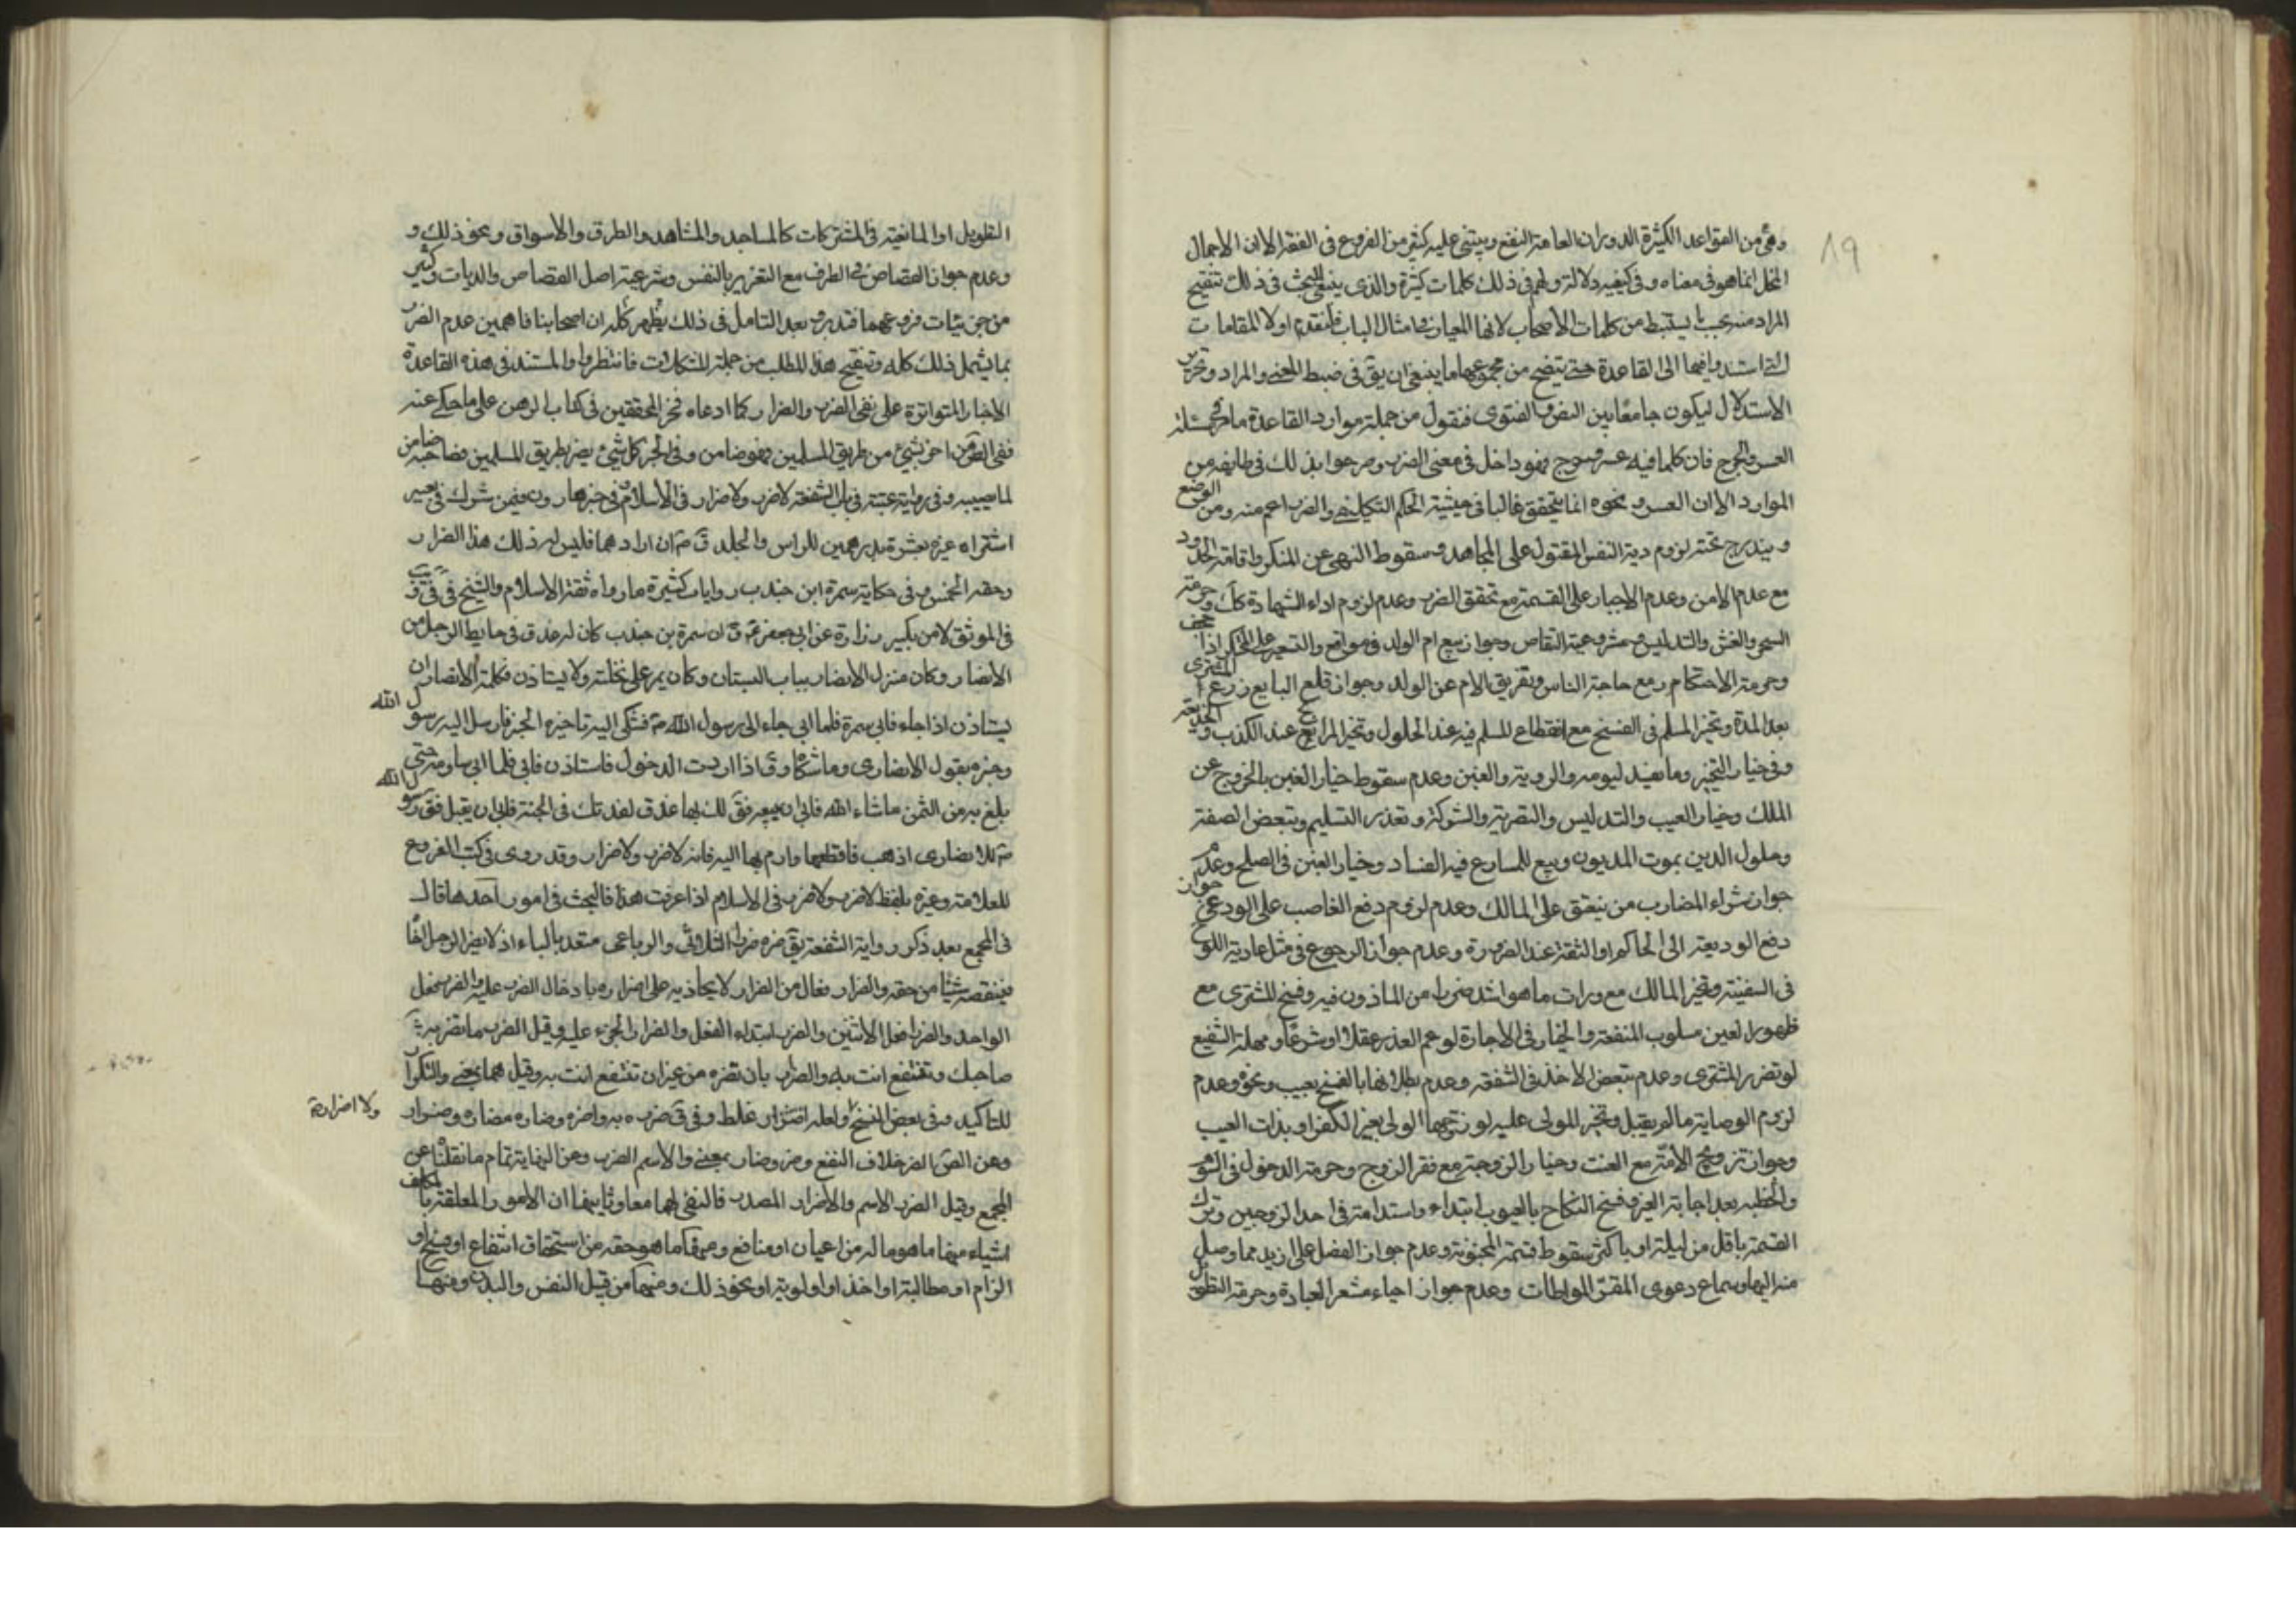 19
وهي من القواعد الكثيرة الدوران العامة النفع ويبتني عليه كثير من الفروع في الفقه الا ان الاجمال
المخل انما هو في معناه وفي كيفية دلالته ولهم في ذلك كلمات كثيرة والذي ينبغي للبحث في ذلك تنقيح
المراد منه بحيث يستنبط من كلمات الأصحاب لانها المعيار في امثال الباب فلنقدم اولا المقامات
التي استندوا فيها الى القاعدة حتى يتضح من مجموعها ما ينبغي ان يق في ضبط المعنى والمراد وتحرير
الاستدلال ليكون جامعا بين النص والفتوى فنقول من جملة موارد القاعدة ما مر في مسئلة
العسر والحرج فان كلما فيه عسر وحرج فهو داخل في معنى الضرر وصرحوا بذلك في طايفة من
الموارد الا ان العسر ونحوه انما يتحقق غالبا في حيثية الحكم التكليفي والضرر اعم منه ومن الوضع
ويندرج تحته لزوم دية النفس المقتول على المجاهد وسقوط النهي عن المنكر واقامة الحدود
مع عدم الامن وعدم الاجبار على القسمة مع تحقق الضرر وعدم لزوم اداء الشهادة كك وحرمة
السحر والغش والتدليس ومشروعية التقاص وجواز بيع ام الولد في مواقع والتسعير على المحتكر اذا اجحف
وحرمة الاحتكار مع حاجة الناس وتفريق الام عن الولد وجواز قلع البايع زرع المشتري
بعد المدة وتخير المسلم في الفسخ مع انقطاع المسلم فيه عند الحلول وتخير المرابح عند الكذب والخديعة
وفي خيار التخير وما يفسد ليومه والرؤية والغبن وعدم سقوط خيار الغبن بالخروج عن
الملك وخيار العيب والتدليس والتصرية والشركة وتعذر التسليم وتبعض الصفقة
وحلول الدين بموت المديون وبيع للمسارع فيه الفساد وخيار الغبن في الصلح وعدم
جواز شراء المضارب من ينعتق على المالك وعدم لزوم دفع الغاصب على الودعي وجواز
دفع الوديعة الى الحاكم او الثقة عند الضرورة وعدم جواز الرجوع في مثل عارية اللوح
في السفينة وتخير المالك مع ما هو اشد ضررا من الماذون فيه وفسخ المشتري مع
ظهور العين مسلوب المنفعة والخيار في الاجارة لو عم العذر عقلا او شرعا ومهلة الشفيع
لو تضرر المشتري وعدم تبعض الاخذ في الشفعة وعدم بطلانها بالفسخ بعيب ونحوه وعدم
لزوم الوصاية ما لم يقبل وتخير المولى عليه لو زوجها الولي بغير الكفو او بذات العيب
وجواز تزويج الأمة مع العنت وخيار الزوجة مع فقر الزوج وحرمة الدخول في السوم
والخطبة بعد اجابة الغير وفسخ النكاح بالعيوب ابتداء واستدامة في احد الزوجين وترك
القسمة باقل من ليلة او باكثر وسقوط قسمة المجنونة وعدم جواز الفضل على ازيد مما وصل
منه اليها وسماع دعوى المقر المواطات وعدم جواز احياء مشعر العبادة وحرمة التطويل
التطويل او المانعية في المشتركات كالمساجد والمشاهد والطرق والاسواق ونحو ذلك و
وعدم جواز القصاص في الطرف مع التغرير بالنفس وشرعية اصل القصاص والديات وكثير
من جزئيات فروعهما فتدبر وبعد التامل في ذلك يظهر كله ان اصحابنا فاهمين عدم الضرر
بما يشمل ذلك كله وتنقيح هذا المطلب من جملة المشكلات فانتظر والمستند في هذه القاعدة
الاخبار المتواترة على نفي الضرر والضرار كما ادعاه فخر المحققين في كتاب الرهن على ما حكي عنه
ففي الض من اضر بشيء من طريق المسلمين فهو ضامن وفي الخبر كل شيء يضر بطريق المسلمين فصاحبه ضامن
لما يصيبه وفي رواية عقبة في باب الشفعة لاضرر ولاضرار في الاسلام وفي خبر هارون فيمن شرك في بعير
اشتراه غيره بعشرة بدرهمين للراس والجلد ق ع ان ارادهما فليس له ذلك هذا الضرار
وحقه الخمس وفي حكاية سمرة ابن جندب روايات كثيرة ما رواه ثقة الاسلام والشيخ في في ويب
في الموثق لابن بكير زرارة عن ابي جعفر ع ق ان سمرة بن جندب كان له عذق في حايط الرجل من
الانصار وكان منزل الانصار بباب البستان وكان يمر على نخلته ولا يستاذن فكلمه الانصار ان
يستاذن اذا جاء فابى سمرة فلما ابى جاء الى رسول الله ص فشكى اليه فاخبره الخبر فارسل اليه رسول الله
وخبره بقول الانصاري وما شكاه وق اذا اردت الدخول فاستاذن فابى فلما ابى ساومه حتى
بلغ به من الثمن ما شاء الله فابى ان يبيعه فق لك بها عذق لغد تك في الجنة فابى ان يقبل فق رسول الله
ص للانصاري اذهب فاقلعها وارم بها اليه فانه لاضرر ولاضرار وقد روى في كتب الفروع
للعلامة وغيره بلفظ لاضرر ولاضرر في الاسلام اذا عرفت هذا فالبحث في امور احدها قال
في المجمع بعد ذكر رواية الشفعة يق ضره ضررا الثلاثي والرباعي متعد بالباء اذ لا يضر الرجل اخا
فينقصه شيئا من حقه والضرار فعال من الضرار لا يجاذيه على اضراره بادخال الضرر عليه والضرر فعل
الواحد والضرار فعل الاثنين والضرر ابتداء الفعل والضرار الجزء عليه وقيل الضرر ما تضر به
صاحبك وتنتفع انت به والضرار بان تضره من غير ان تنتفع انت به وقيل هما بمعنى والتكرار
للتاكيد وفي بعض النسخ ولعله اضرار غلط وفي ق ضره به واضره وضاره مضاره وضرار
ولا اضرار
وعن الض الضر خلاف النفع وضر وضار بمعنى والاسم الضرر وعن النهاية تمام ما نقلنا عن
المجمع وقيل الضرر الاسم والاضرار المصدر فالنفي لهما معا وثانيها ان الامور المعلقة بالمكلف
اشياء منها ما هو ماله من اعيان او منافع ومنها ما هو حقه من استحقاق انتفاع او فسخ او
الزام او مطالبة او اخذ او اولوية او نحو ذلك ومنها من قبيل النفس والبدن ومنها